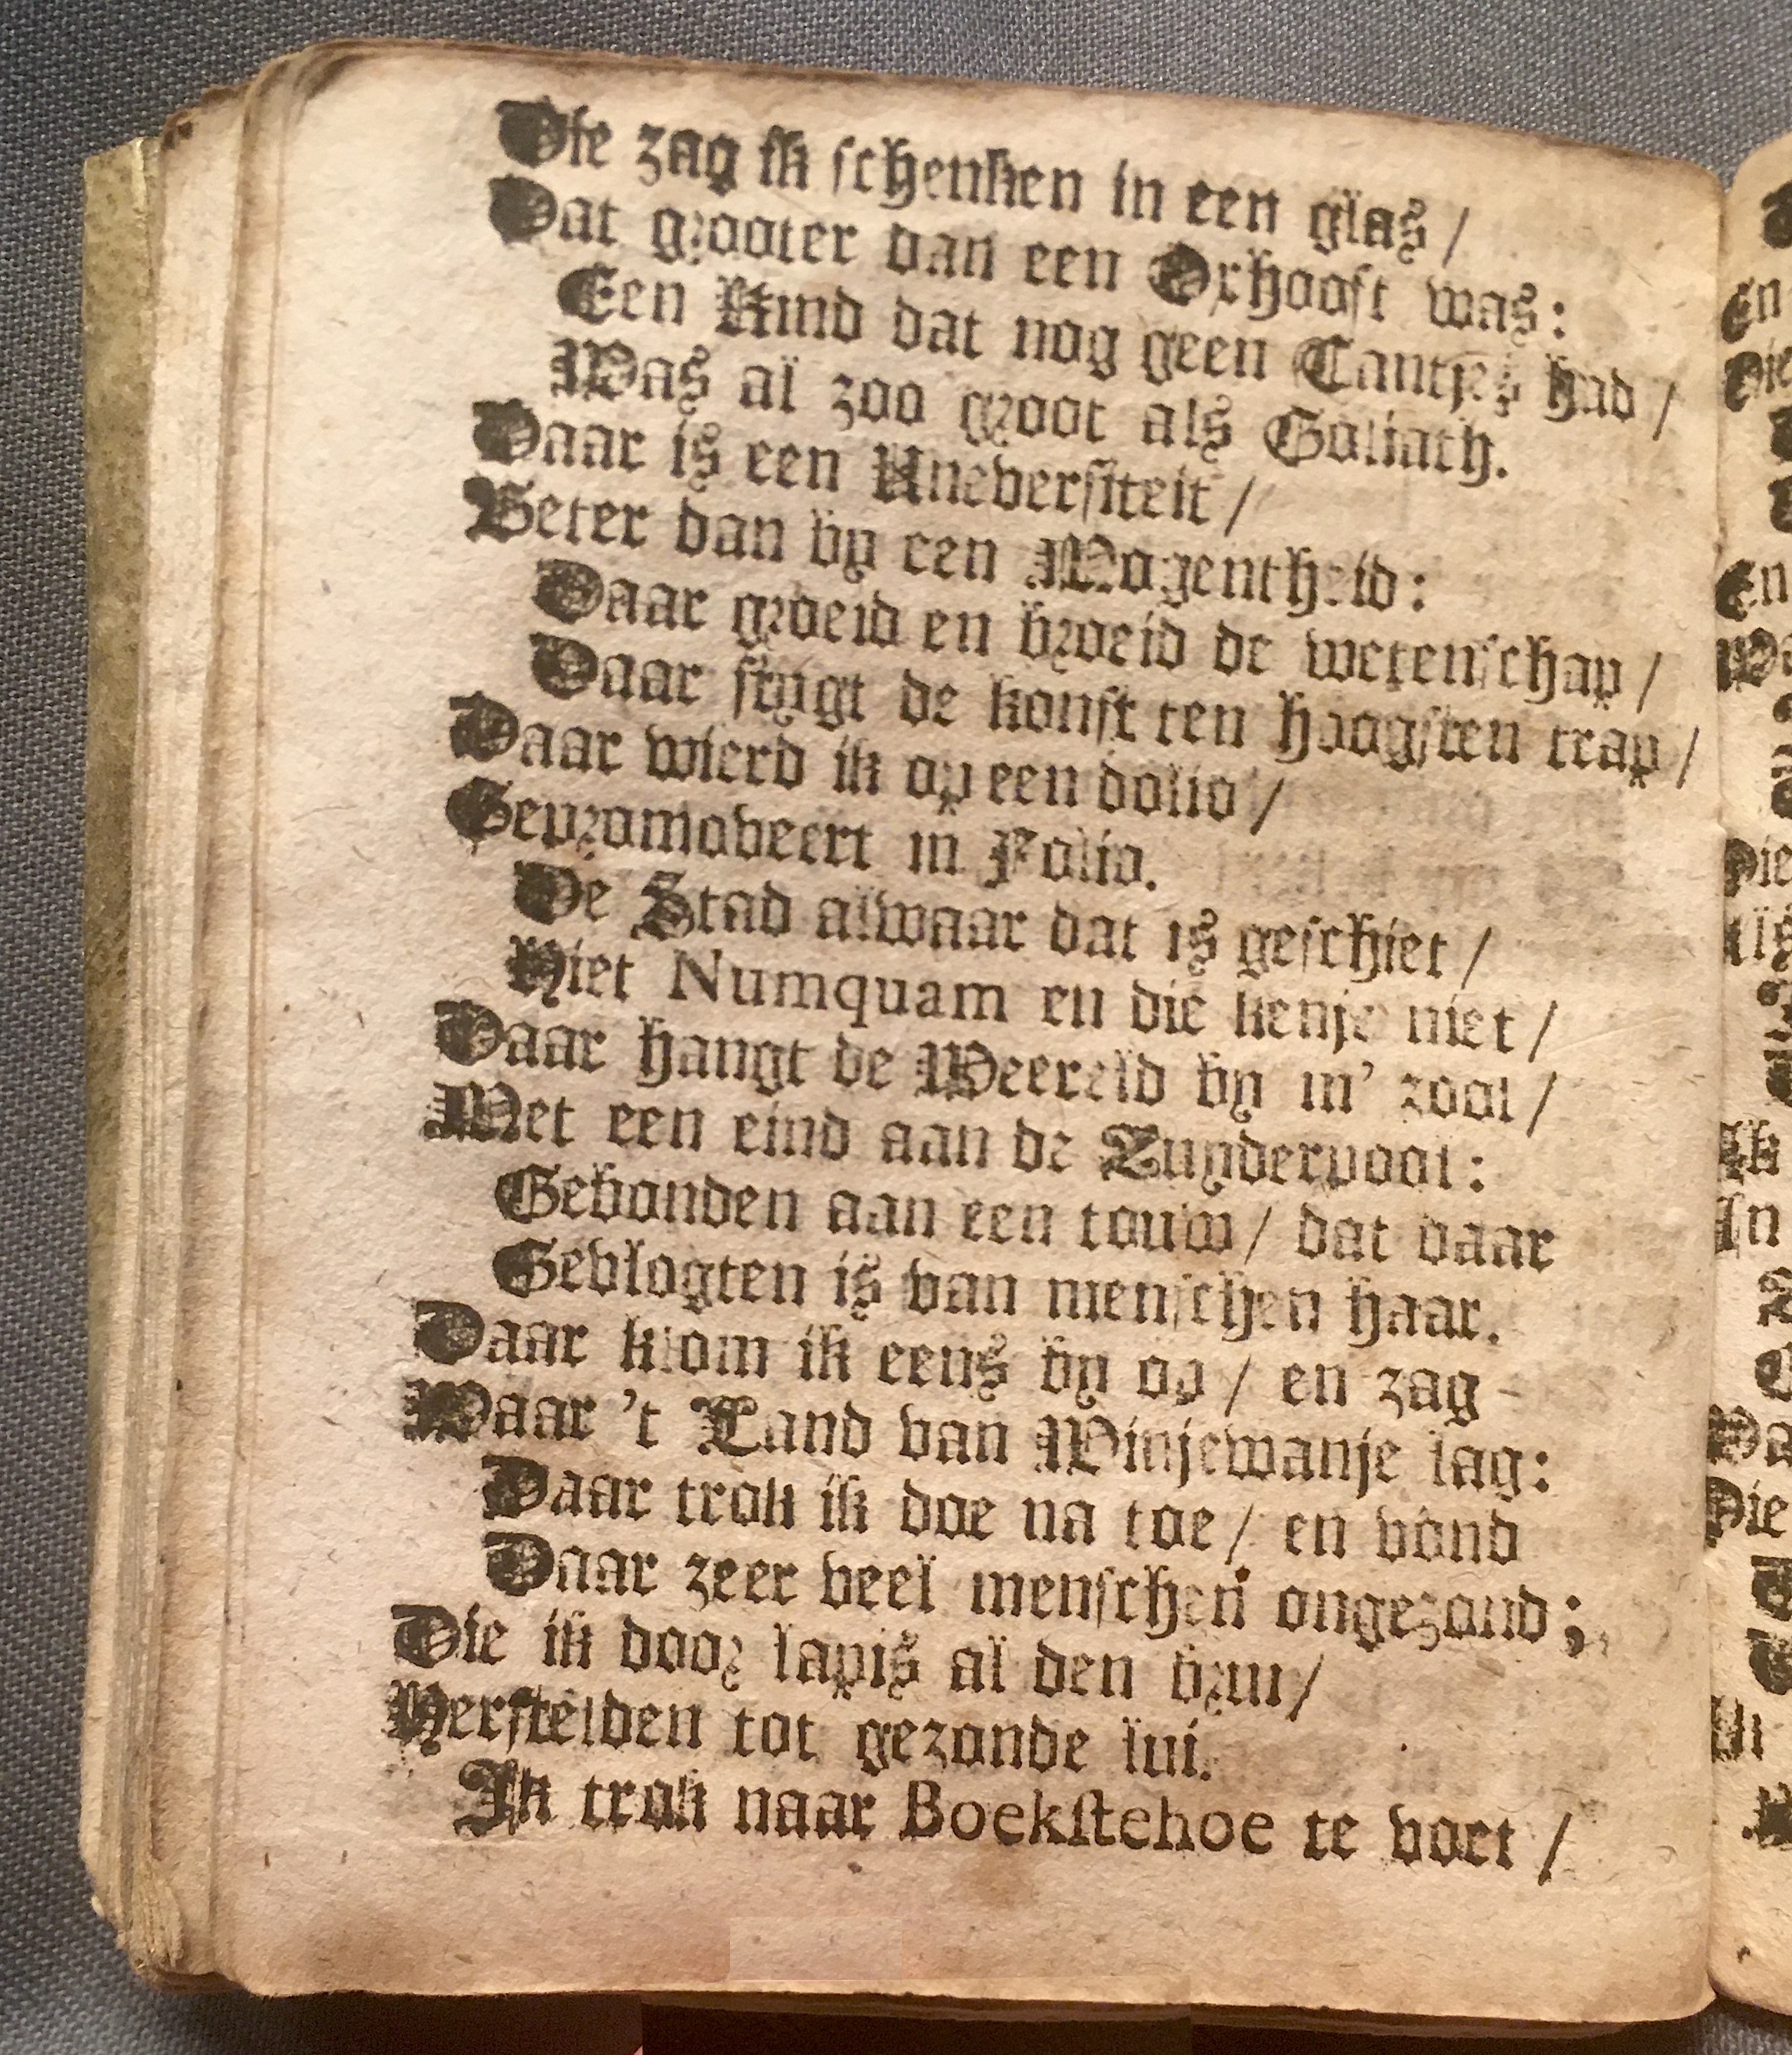 Die zag ik schenken in een glas /
Dat grooter dan een Oxhooft was:
Een Kind dat nog geen Tantjes had /
Was al zoo groot als Goliath.
Daar is een Uneversiteit /
Beter dan by een Mogentheid:
Daar groeid en broeid de wetenschap /
Daar stygt de konst ten hoogsten trap /
Daar wierd ik op een dolio /
Gepromoveert in Folio.
De Stad alwaar dat is geschiet /
Hiet Numquam en die kenje niet /
Daar hangt de Weereld by m' zool /
Met een eind aan de Zuyderpool:
Gebonden aan een touw / dat daar
Gevlogten is van menschen haar.
Daar klom ik eens by op / en zag
Waar 't Land van Winjewanje lag:
Daar trok ik doe na toe / en vond
Daar zeer veel menschen ongezond;
Die ik door lapis al den brui /
Herstelden tot gezonde lui.
Ik trok naar Boekstehoe te voet /
En
Die
En
Die
Ik
In
Die